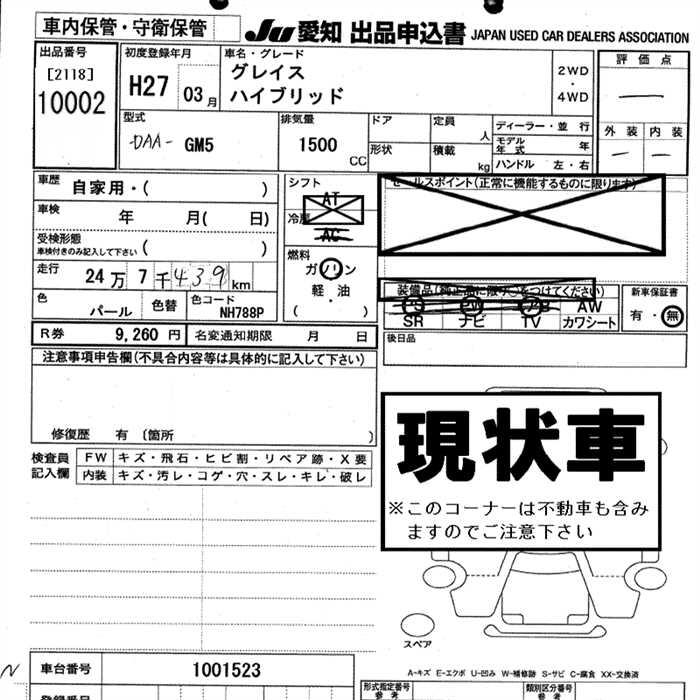 車内保管・守衛保管
JU 愛知 出品申込書 JAPAN USED CAR DEALERS ASSOCIATION
出品番号
[2118]
10002
初度登録年月
H27 03月
車名・グレード
グレイス
ハイブリッド
2WD
・
4WD
評価点
—
外装 内装
— —
型式
-DAA- GM5
排気量
1500
CC
ドア
形状
定員
人
積載
kg
ディーラー・並行
モデル年式 年
ハンドル 左・右
車歴 自家用・( )
車検 年 月( 日)
受検形態
車検付きのみ記入して下さい ( )
走行 24万7千439km
色 パール 色替 色コード NH788P
シフト
AT
冷房
AC
燃料
ガソリン
軽・油
( )
セールスポイント(正常に機能するものに限ります)
装備品(純正品に限り○をつけてください)
PS PW AW
SR ナビ TV カワシート
新車保証書
有・無
後日品
R券 9,260円 名変通知期限 月 日
注意事項申告欄(不具合内容等は具体的に記入して下さい)
修復歴 有 〔箇所 〕
検査員記入欄
FW キズ・飛石・ヒビ割・リペア跡・X要
内装 キズ・汚レ・コゲ・穴・スレ・キレ・破レ
現状車
※このコーナーは不動車も含み
ますのでご注意下さい
スペア
A-キズ E-エクボ U-凹み W-補修跡 S-サビ C-腐食 XX-交換済
N
車台番号 1001523
登録番号
形式指定番号
参考
類別区分番号
参考